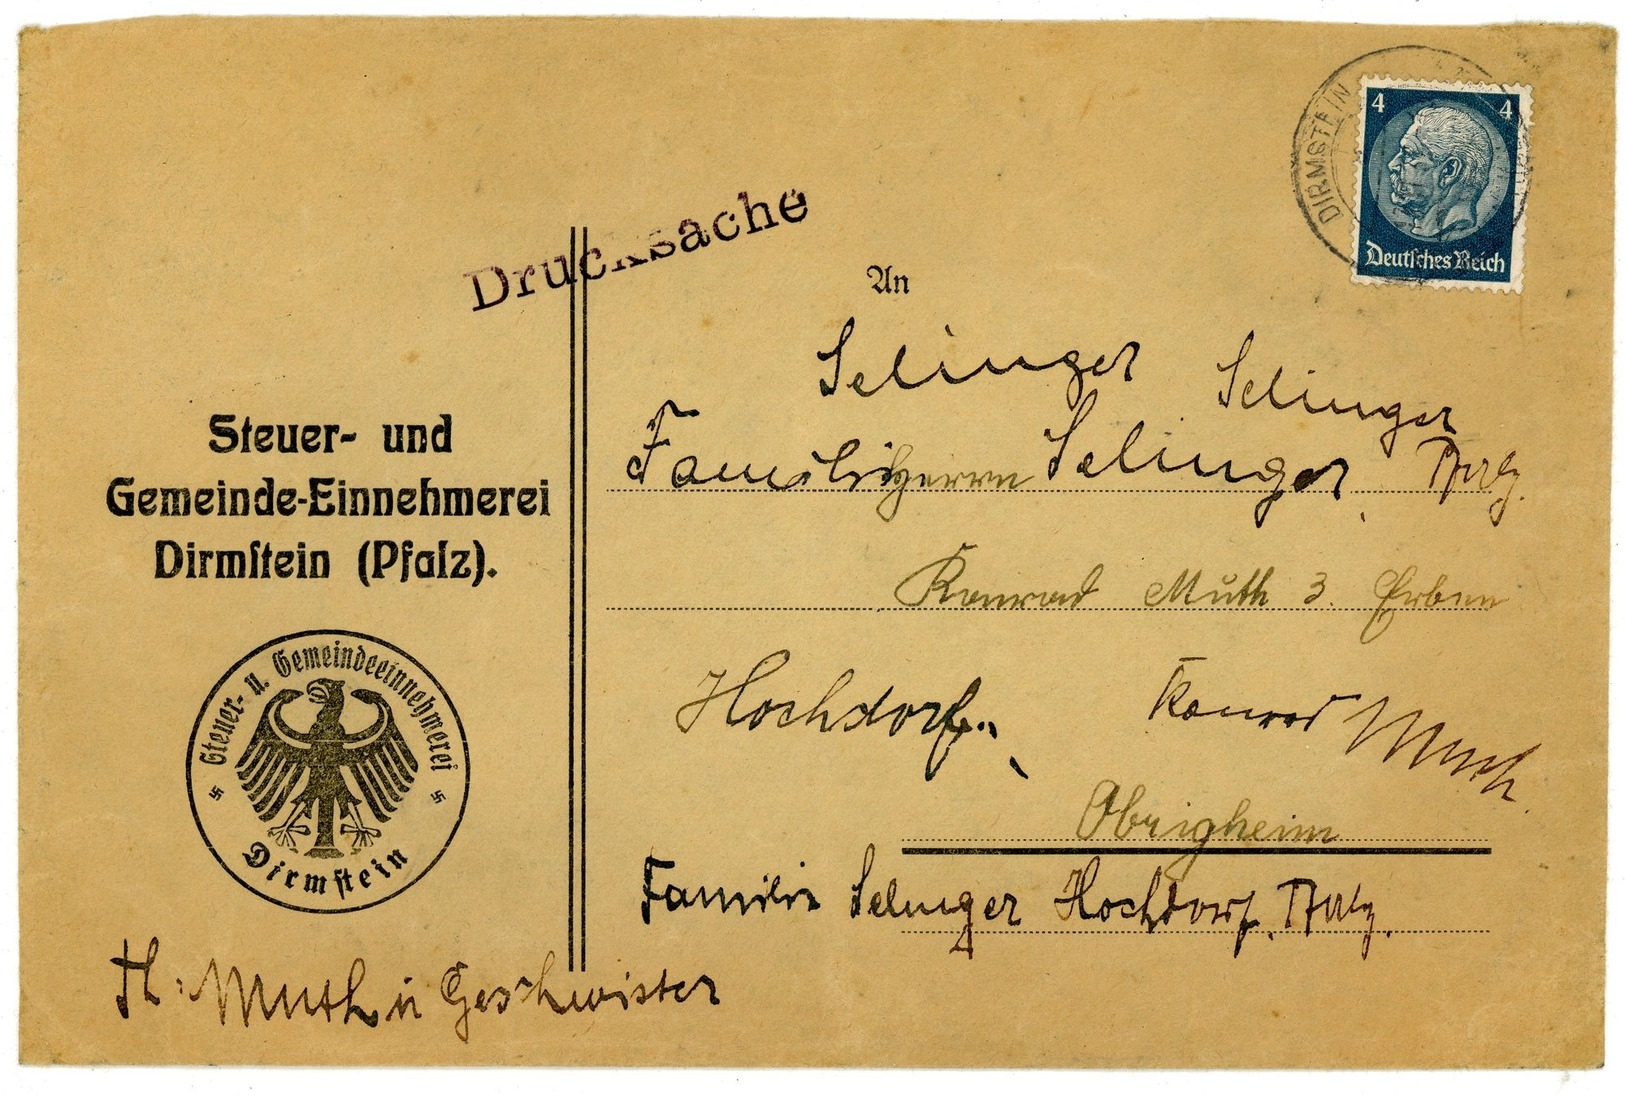 DIRMSTEIN
4 4
Deutsches Reich
Drucksache
An
Selinger Selinger
Familie Herrn Selinger, Pfalz
Konrad Muth 3. Erben
Hochdorf Konrad Muth
Obrigheim
Familie Selinger Hochdorf, Pfalz.
Steuer- und
Gemeinde-Einnehmerei
Dirmstein (Pfalz).
Steuer- u. Gemeindeeinnehmerei
Dirmstein
H: Muth u Geschwister